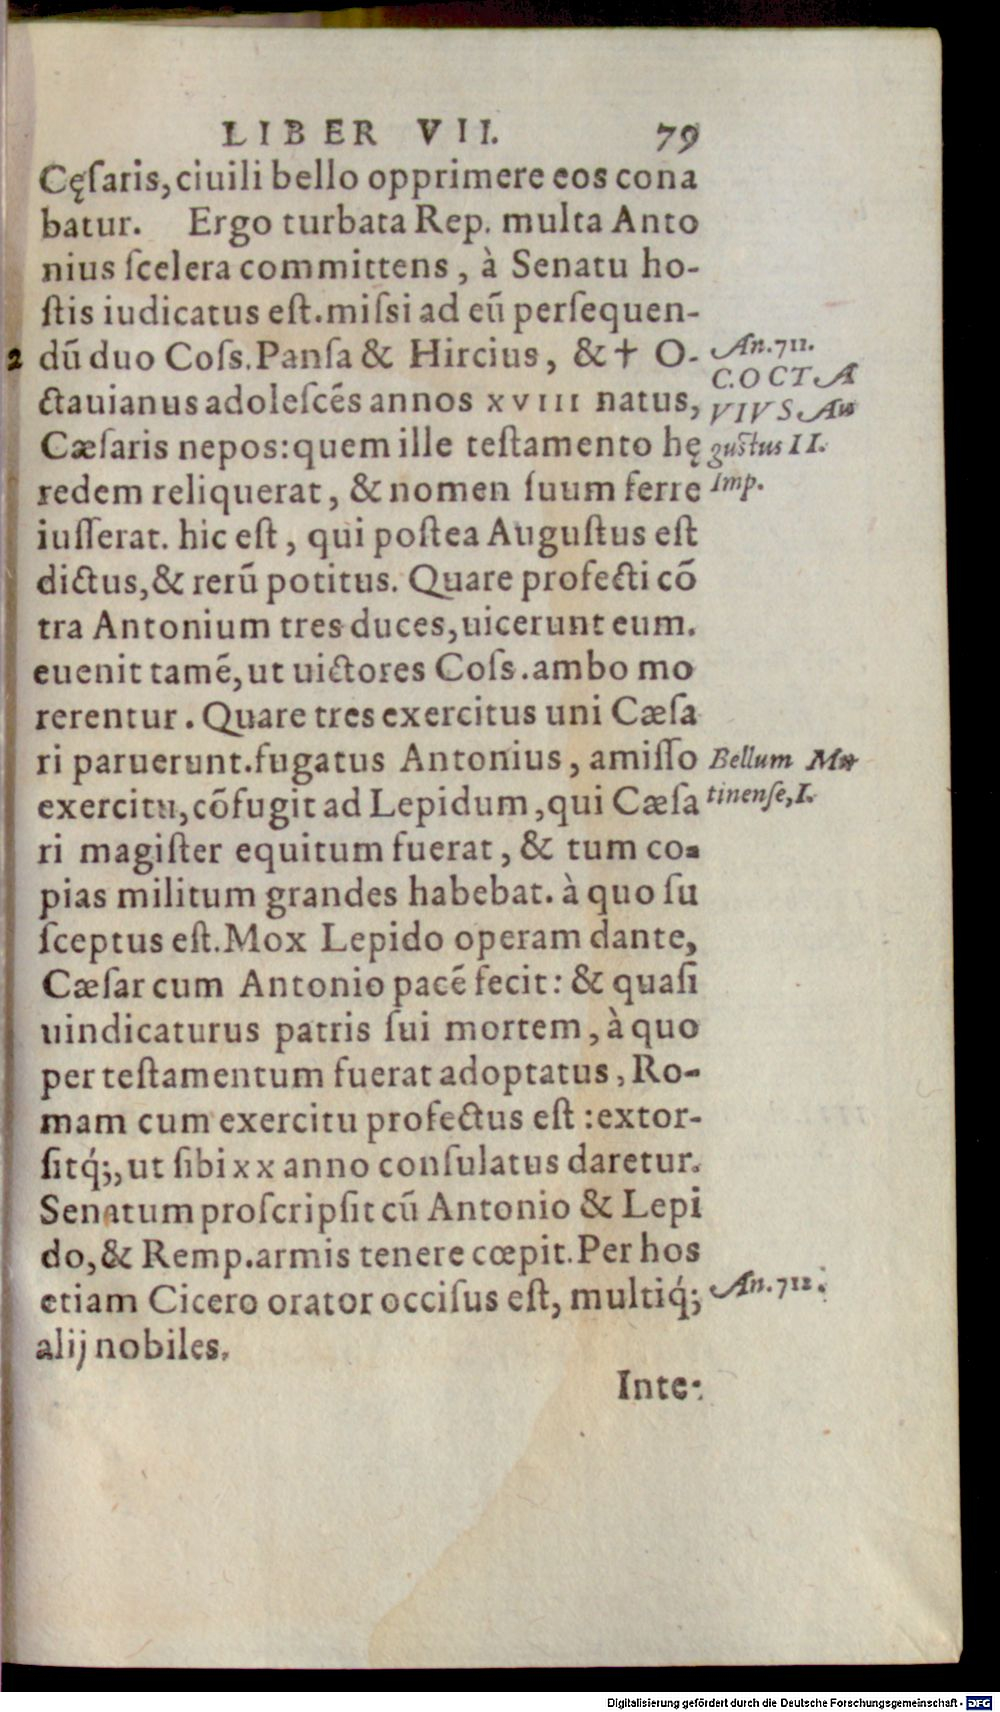 LIBER VII. 79
Cęſaris, ciuili bello opprimere eos cona
batur. Ergo turbata Rep. multa Anto
nius ſcelera committens, à Senatu ho-
ſtis iudicatus eſt. miſsi ad eũ perſequen-
2 dũ duo Coſs. Panſa & Hircius, & † O-
ctauianus adoleſcẽs annos xviii natus,
Cæſaris nepos: quem ille teſtamento hę
redem reliquerat, & nomen ſuum ferre
iuſſerat. hic eſt, qui poſtea Auguſtus eſt
dictus, & rerũ potitus. Quare profecti cõ
tra Antonium tres duces, uicerunt eum.
euenit tamẽ, ut uictores Coſs. ambo mo
rerentur. Quare tres exercitus uni Cæſa
ri paruerunt. fugatus Antonius, amiſſo
exercitu, cõfugit ad Lepidum, qui Cæſa
ri magiſter equitum fuerat, & tum co-
pias militum grandes habebat. à quo ſu
ſceptus eſt. Mox Lepido operam dante,
Cæſar cum Antonio pacẽ fecit: & quaſi
uindicaturus patris ſui mortem, à quo
per teſtamentum fuerat adoptatus, Ro-
mam cum exercitu profectus eſt: extor-
ſitq́;, ut ſibi xx anno conſulatus daretur.
Senatum proſcripſit cũ Antonio & Lepi
do, & Remp. armis tenere cœpit. Per hos
etiam Cicero orator occiſus eſt, multiq́;
alij nobiles.
Inte-
An. 711.
C. OCTA
VIVS Au
guſtus II.
Imp.
Bellum Mu
tinenſe, I.
An. 712.
Digitalisierung gefördert durch die Deutsche Forschungsgemeinschaft - DFG